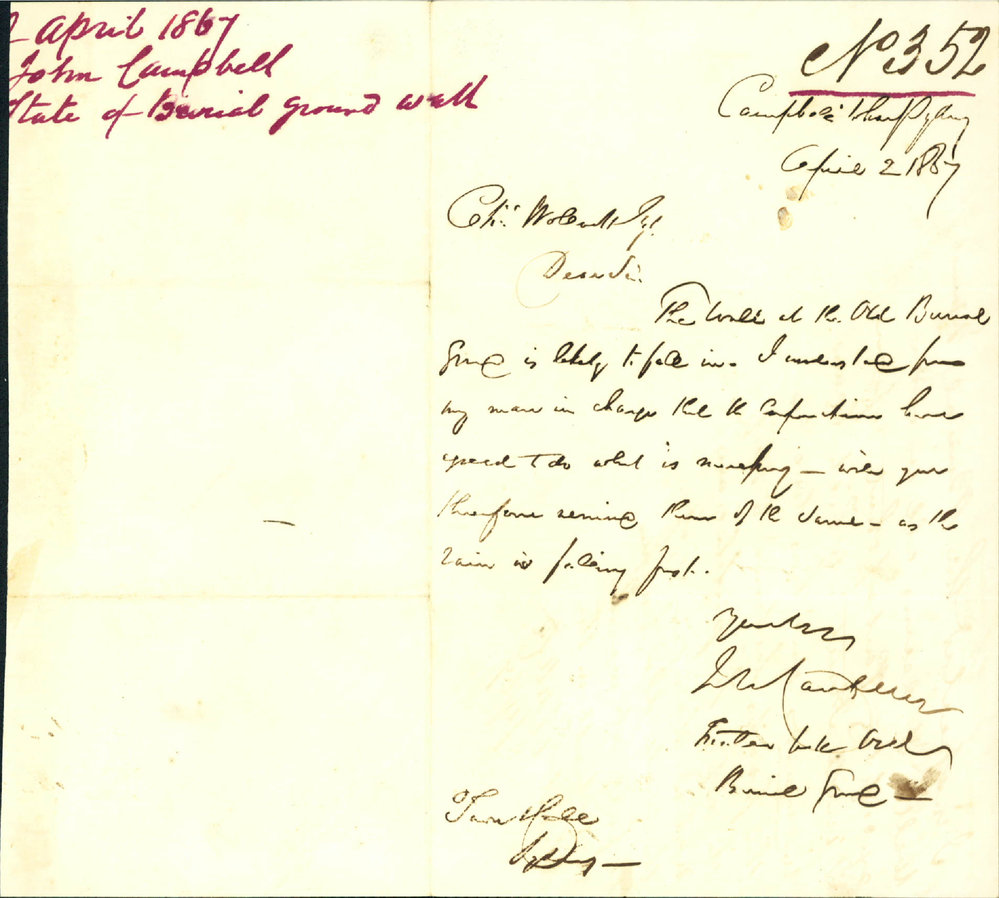 2 April 1867
John Campbell
State of Burial Ground Wall
No 352
Campbells Wharf Sydney
April 2 1867
Chs. Woolcott Esq.
Dear Sir.
The Wall at the Old Burial
Ground is likely to fall in. I understand from
my man in charge that the Corporation have
agreed to do what is necessary – will you
therefore remind them of the same – as the
rain is falling fast.
Yours truly
Jn Campbell
Trustee to the Old
Burial Ground –
Town Hall
Sydney –